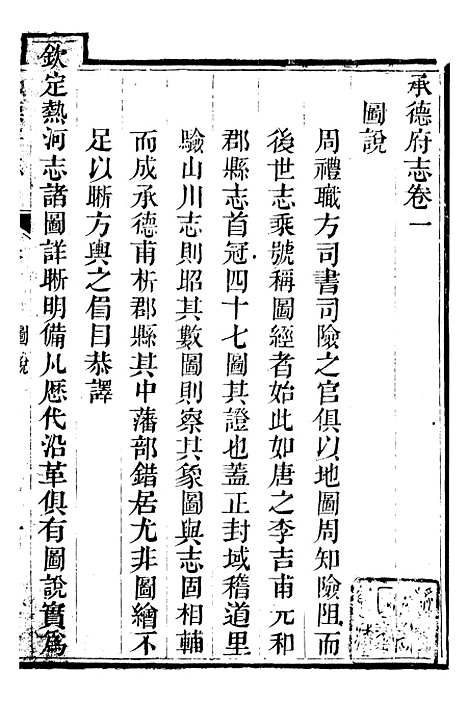 承德府志卷一
圖說
周禮職方司書司險之官俱以地圖周知險阻而
後世志乘號稱圖經者始此如唐之李吉甫元和
郡縣志首冠四十七圖其證也蓋正封域稽道里
驗山川志則昭其數圖則察其象圖與志固相輔
而成承德甫析郡縣其中藩部錯居尤非圖繪不
足以晰方輿之眉目恭譯
欽定熱河志諸圖詳晰明備凡歷代沿革俱有圖說實為
圖說